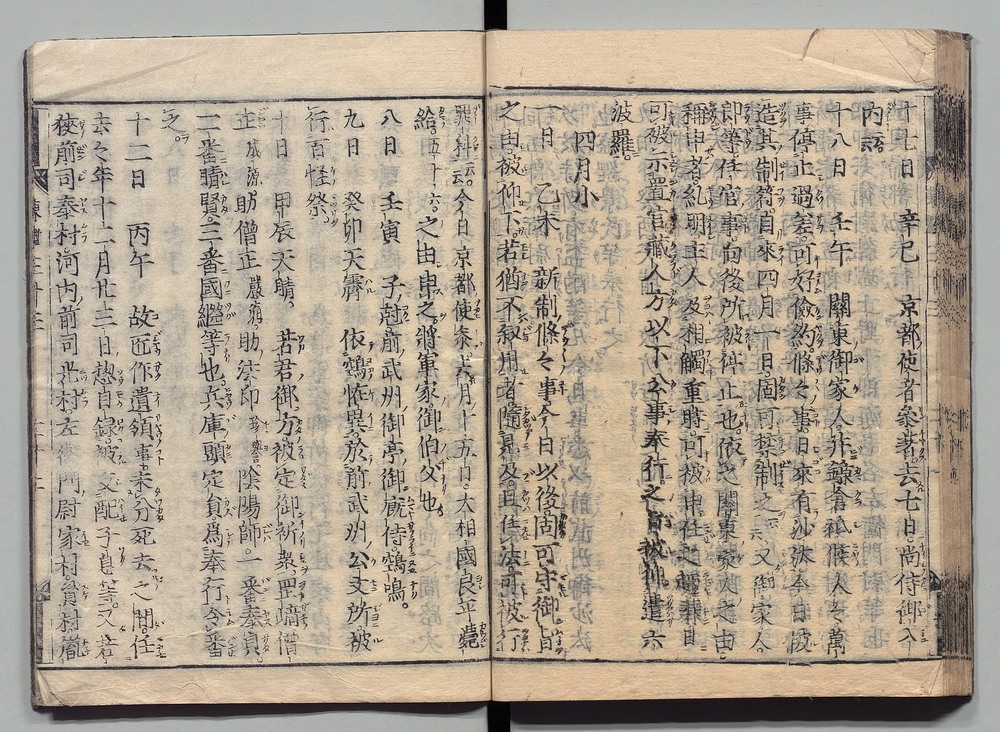 十七日　辛巳　京都使者參著去七日尚侍御入
内云云
十八日　壬午　關東御家人并鎌倉祗候人々萬
事停止過差可好儉約條々事日來有沙汰今日被
造其制符自來四月一日固可禁制之云云又御家人
郎等任官事向後所被停止也依之關東蒙定之由
稱申者糺明主人及相觸重時可被申任之輩兼日
可被示置官職人方以下公事奉行之由被仰遣六
波羅
四月小
一日　乙未　新制條々事今日以後固可守御旨
之由被仰下若猶不叙用者隨見及且任法可被行
罪科云云今日京都使參去月十五日太相國良平薨
給五十六之由申之將軍家御伯父也
八日　壬寅　子尅前武州御亭御廐侍鵼鳴
九日　癸卯天霽　依鵼怪異於前武州公文所被
行百怪祭
十日　甲辰天晴　若君御方被定御祈衆四嶋僧
正成源助僧正嚴海助法印珍譽陰陽師一番泰貞
二番晴賢三番國繼等也兵庫頭定員爲奉行令番
之
十二日　丙午　故匠作遺領事未分死去之間任
去々年十二月廿三日愁自録被支配子息等又若
狹前司泰村河内前司光村左衛門尉家村資村胤